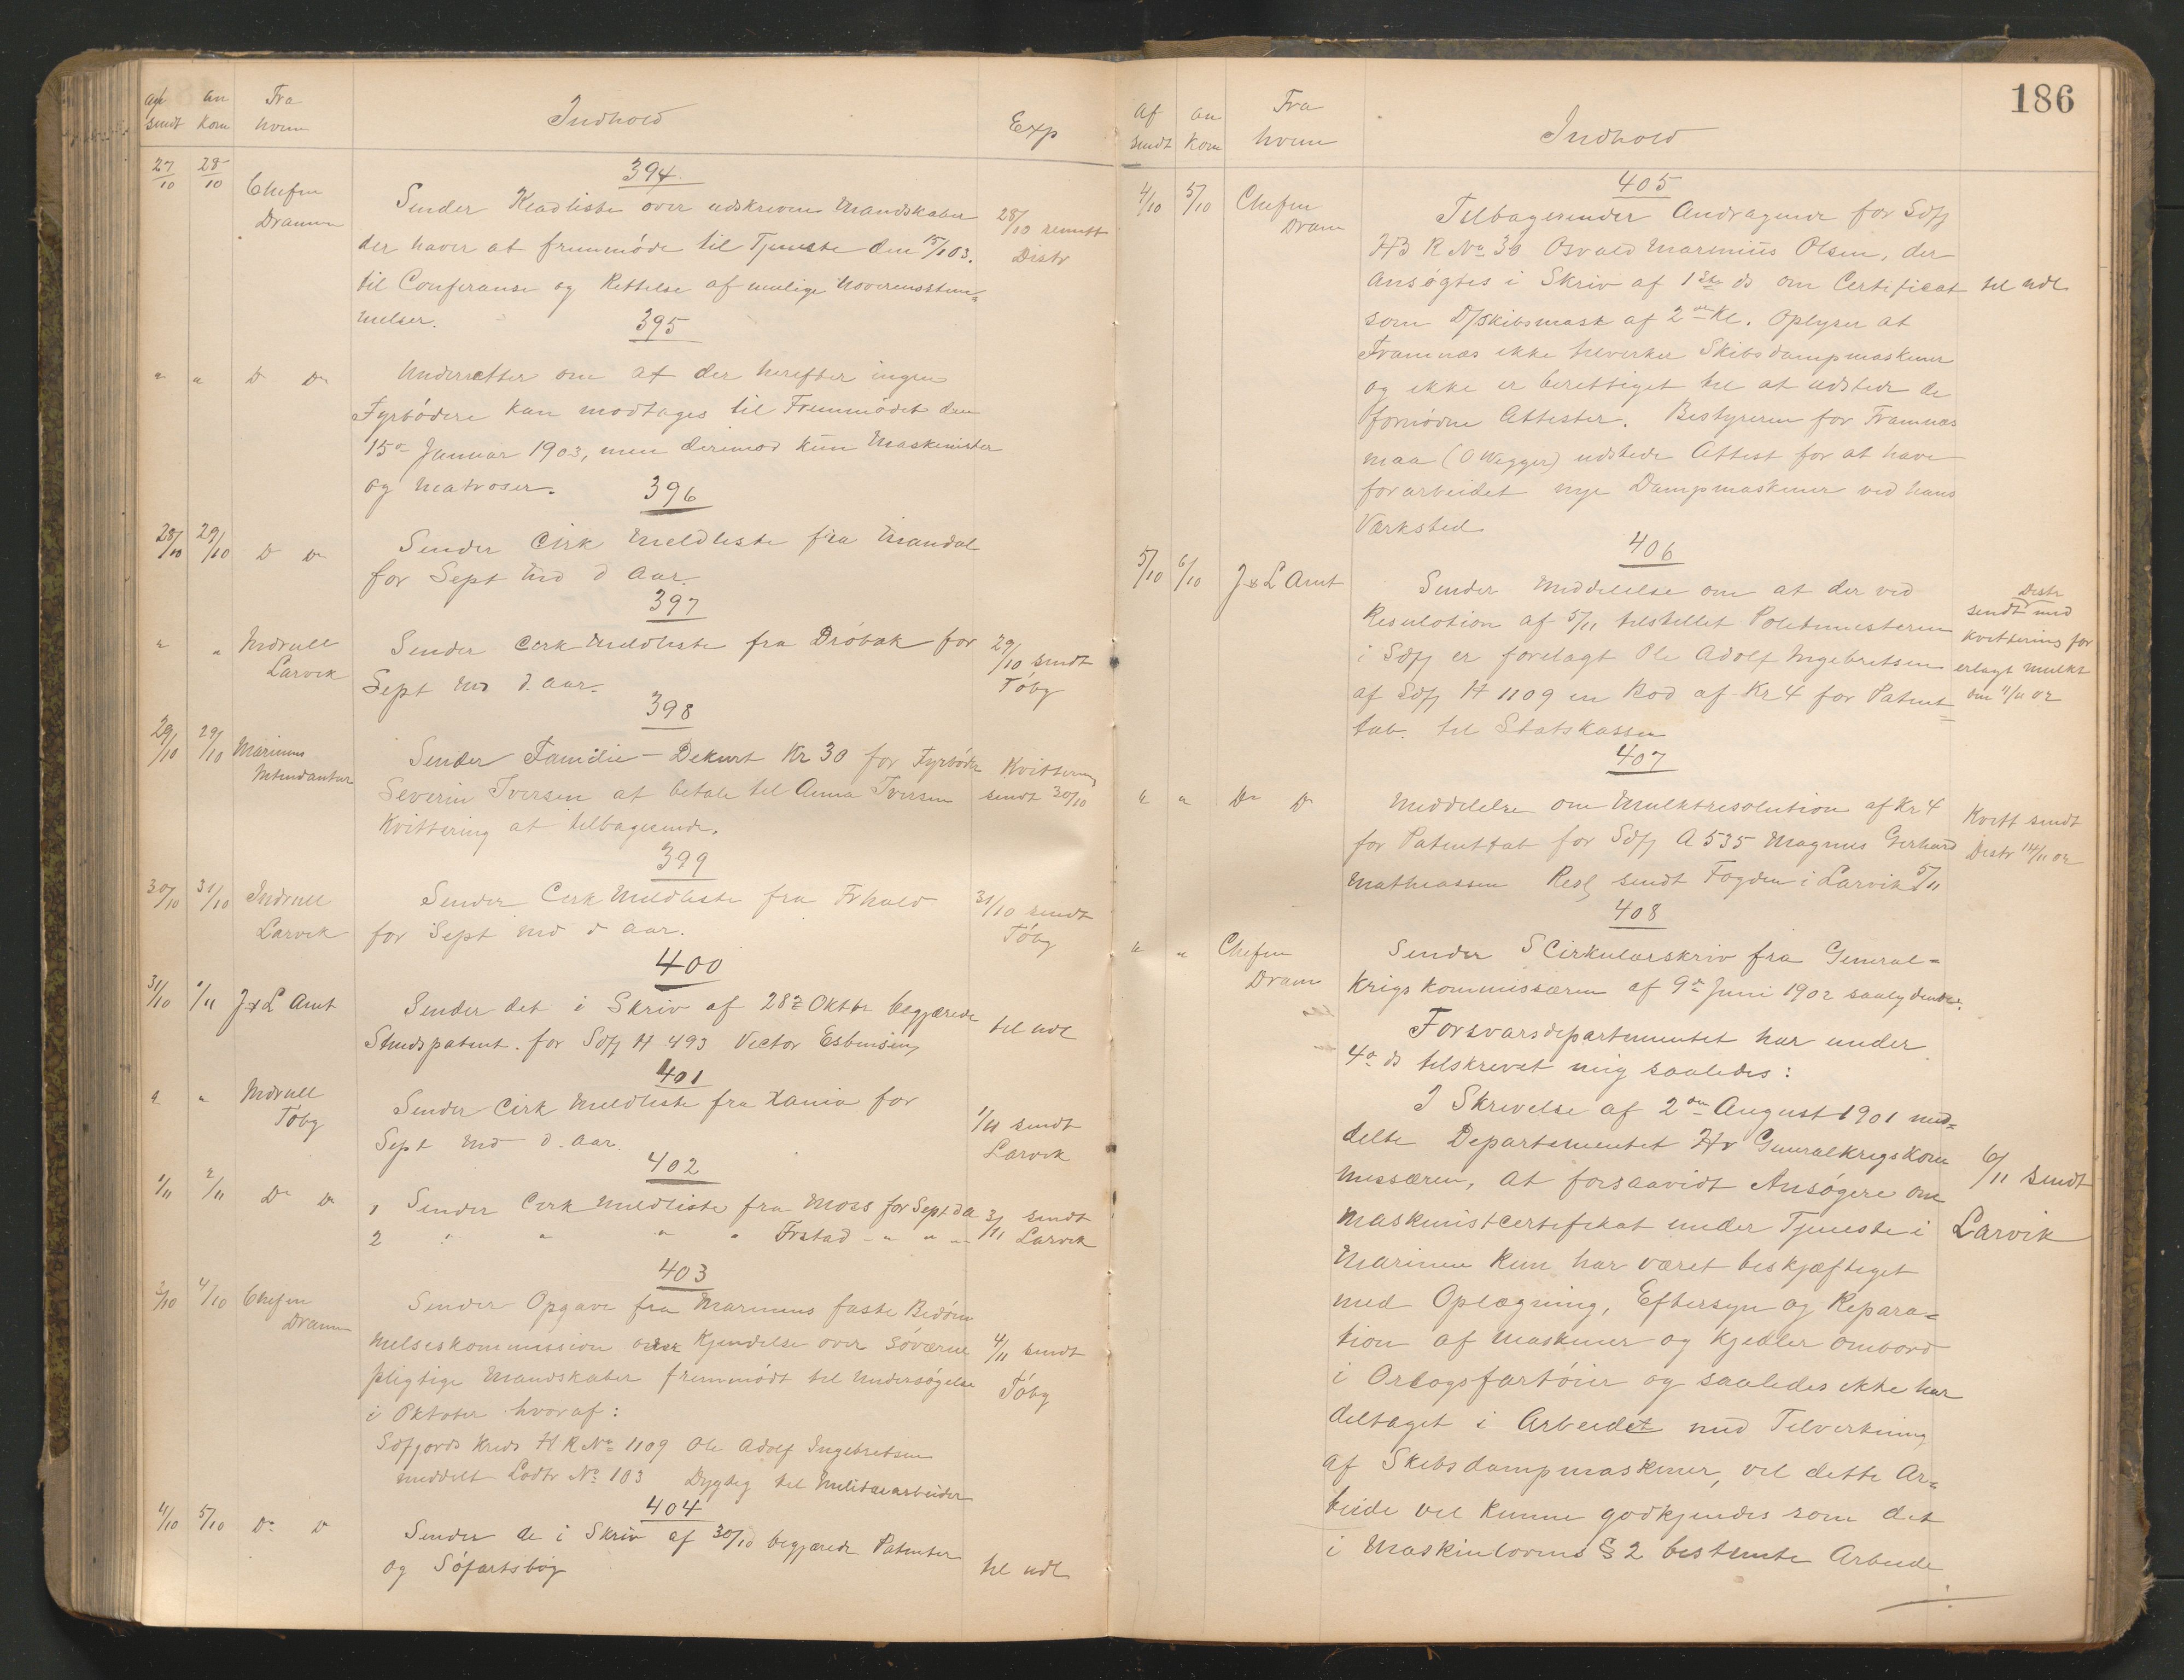 af sendt
an kom
Fra hvem
Indhold
Exp
394
27/10 28/10 Chefen Drammen
Sender Kladliste over udskrevne Mandskaber
der haver at fremmøde til Tjeneste den 15/1 03.
til Conferanse og Rettelse af mulige Uoverensstem=
melser.
28/10 remitt Distr
395
" " Do Do
Underretter om at der herefter ingen
Fyrbødere kan modtages til Fremmødet den
15de Januar 1903, men derimod kun Maskinister
og Matroser.
396
28/10 29/10 Do Do
Sender Cirk Meldliste fra Mandal
for Sept Md d Aar.
397
" " Indrull Larvik
Sender Cirk Meldliste fra Drøbak for
Sept Md d. Aar.
29/10 sendt Tøbg
398
29/10 29/10 Marinens Intendantur
Sender Familie-Dekurt Kr 30 for Fyrbøder
Severin Iversen at betale til Anna Iversen
Kvittering at tilbagesende.
Kvittering sendt 30/10
399
30/10 31/10 Indrull Larvik
Sender Cirk Meldliste fra Frhald
for Sept Md d Aar.
31/10 sendt Tøbg
400
31/10 1/11 J & L Amt
Sender det i Skriv af 28de Oktbr begjærede
Skudspatent. for Sdfj H 493 Victor Esbensen
til udl
401
" " Indrull Tøbg
Sender Cirk Meldliste fra Xania for
Sept Md d. Aar.
1/11 sendt Larvik
402
1/11 2/11 Do Do
1 Sender Cirk Meldliste fra Moss for Sept d A
2 " " " " Frstad - " " -
3/11 sendt Larvik
403
3/10 4/10 Chefen Dramm
Sender Opgave fra Marinens faste Bedøm
melseskommission over Kjendelse over Søværne
pligtige Mandskaber fremmødt til Undersøgelse
i Oktober hvoraf:
Sdfjords Kreds H R No 1109 Ole Adolf Ingebretsen
meddelt Lodtr No 103 Dygtig til Militærarbeider
4/11 sendt Tøbg
404
4/10 5/10 Do Do
Sender de i Skriv af 30/10 begjærede Patenter
og Søfartsbog
til udl
186
af sendt
an kom
Fra hvem
Indhold
405
4/10 5/10 Chefen Dram
Tilbagesender Andragende for Sdfj
HB R No 30 Osvald Marenius Olsen, der
ansøgtes i Skriv af 1ste ds om Certificat
som D/skibsmask af 2den Kl. Oplyser at
Framnæs ikke tilvirker Skibsdampmaskiner
og ikke er berettiget til at udstede de
fornødne Attester. Bestyreren for Framnæs
maa (O Wegger) udstede Attest for at have
forarbeidet nye Dampmaskiner ved hans
Værksted
til udl
406
5/10 6/10 J & L Amt
Sender Meddelelse om at der ved
Resulotion af 5/11 tilstillet Politimesteren
i Sdfj er forelagt Ole Adolf Ingebretsen
af Sdfj H 1109 en Bod af Kr 4 for Patent=
tab. til Statskassen
Distr
sendt med
kvittering for
erlagt mulkt
den 11/11 02
407
" " Do Do
Meddelelse om Mulktresolution af Kr 4
for Patenttab for Sdfj A 535 Magnus Gerhard
Mathiassen Resl sendt Fogden i Larvik 5/11
Kvitt sendt
Distr 14/11 02
408
" " Chefen Dram
Sender S Cirkulærskriv fra General=
Krigskommissæren af 9de Juni 1902 saalydende.
Forsvarsdepartementet har under
4de ds tilskrevet mig saaledes:
I Skrivelse af 2den August 1901 med=
delte Departementet Hr Generalkrigskom
missæren, at forsaavidt Ansøgere om
Maskinistcertifikat under Tjeneste i
Marinen kun har været beskjæftiget
med Oplægning, Eftersyn og Repara=
tion af Maskiner og Kjedler ombord
i Orlogsfartøier og saaledes ikke har
deltaget i Arbeidet med Tilvirkning
af Skibsdampmaskiner, vil dette Ar=
beide vel kunne godkjendes som det
i Maskinlovens § 2 bestemte Arbeide
6/11 sendt
Larvik